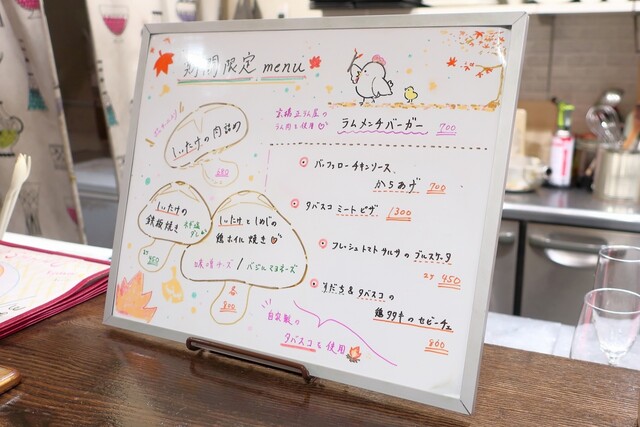 期間限定 menu
しいたけの肉詰め
680
しいたけの
鉄板焼き
450
しいたけとしめじの
鶏ホイル焼き
味噌チーズ / バジルマヨネーズ
各
800
ラム肉を使用
ラムメンチバーガー 700
バッファローチキンソース
からあげ 700
タバスコミートピザ 1300
フレッシュトマトサルサのブルスケッタ
2ヶ 450
すだち&タバスコの
鶏タタキのセビーチェ
800
自家製の
タバスコを使用